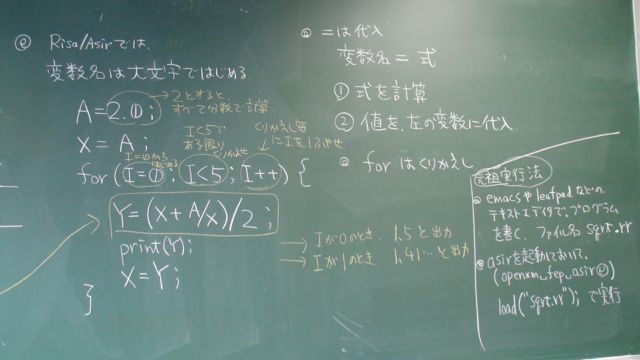 @ Risa/Asirでは、
変数名は大文字ではじめる
A=2.0;
→2とすると、
すべて分数で計算
X = A;
I<5で
ある限り
くりかえし毎
にIを1ふやせ
I=0から
はじめる
くりかえせ
for (I=0; I<5; I++) {
Y=(X+A/X)/2;
print(Y);
X=Y;
}
→ Iが0のとき、1.5と出力
→ Iが1のとき 1.41…と出力
@ =は代入
変数名 = 式
① 式を計算
② 値を、左の変数に代入
@ for はくりかえし
元祖実行法
@ emacsやleafpadなどの
テキストエディタで、プログラム
を書く、ファイル名 sqrt.rr
@ asirを起動しておいて、
(openxm fep asir)
load("sqrt.rr"); で実行